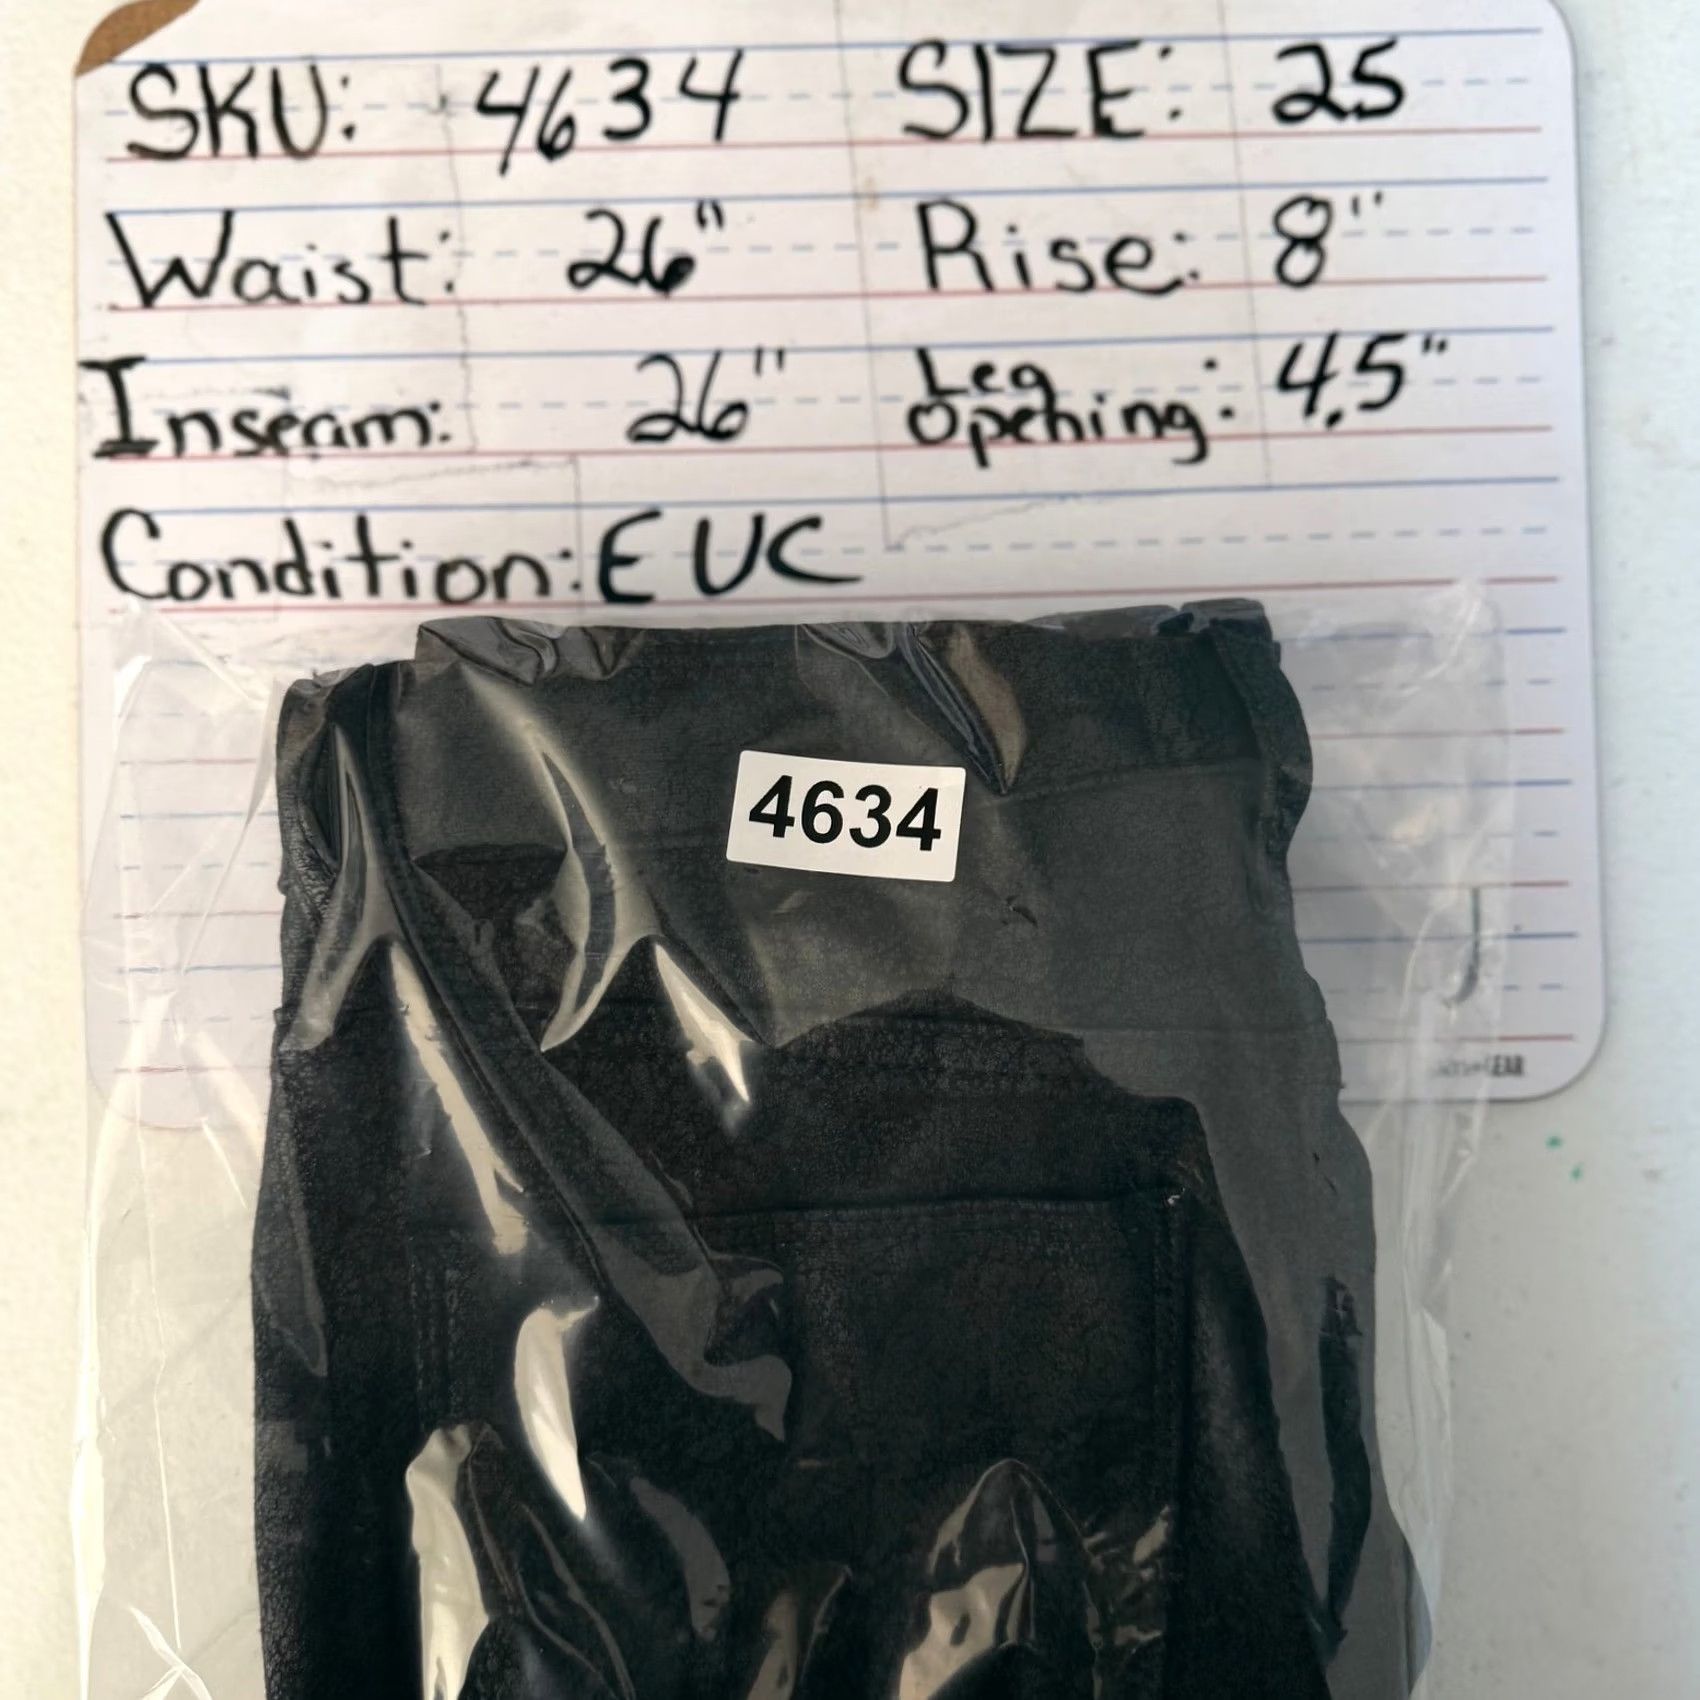 SKU: 4634 SIZE: 25
Waist: 26" Rise: 8"
Inseam: 26" Leg Opening: 4.5"
Condition: EUC
4634
GEAR